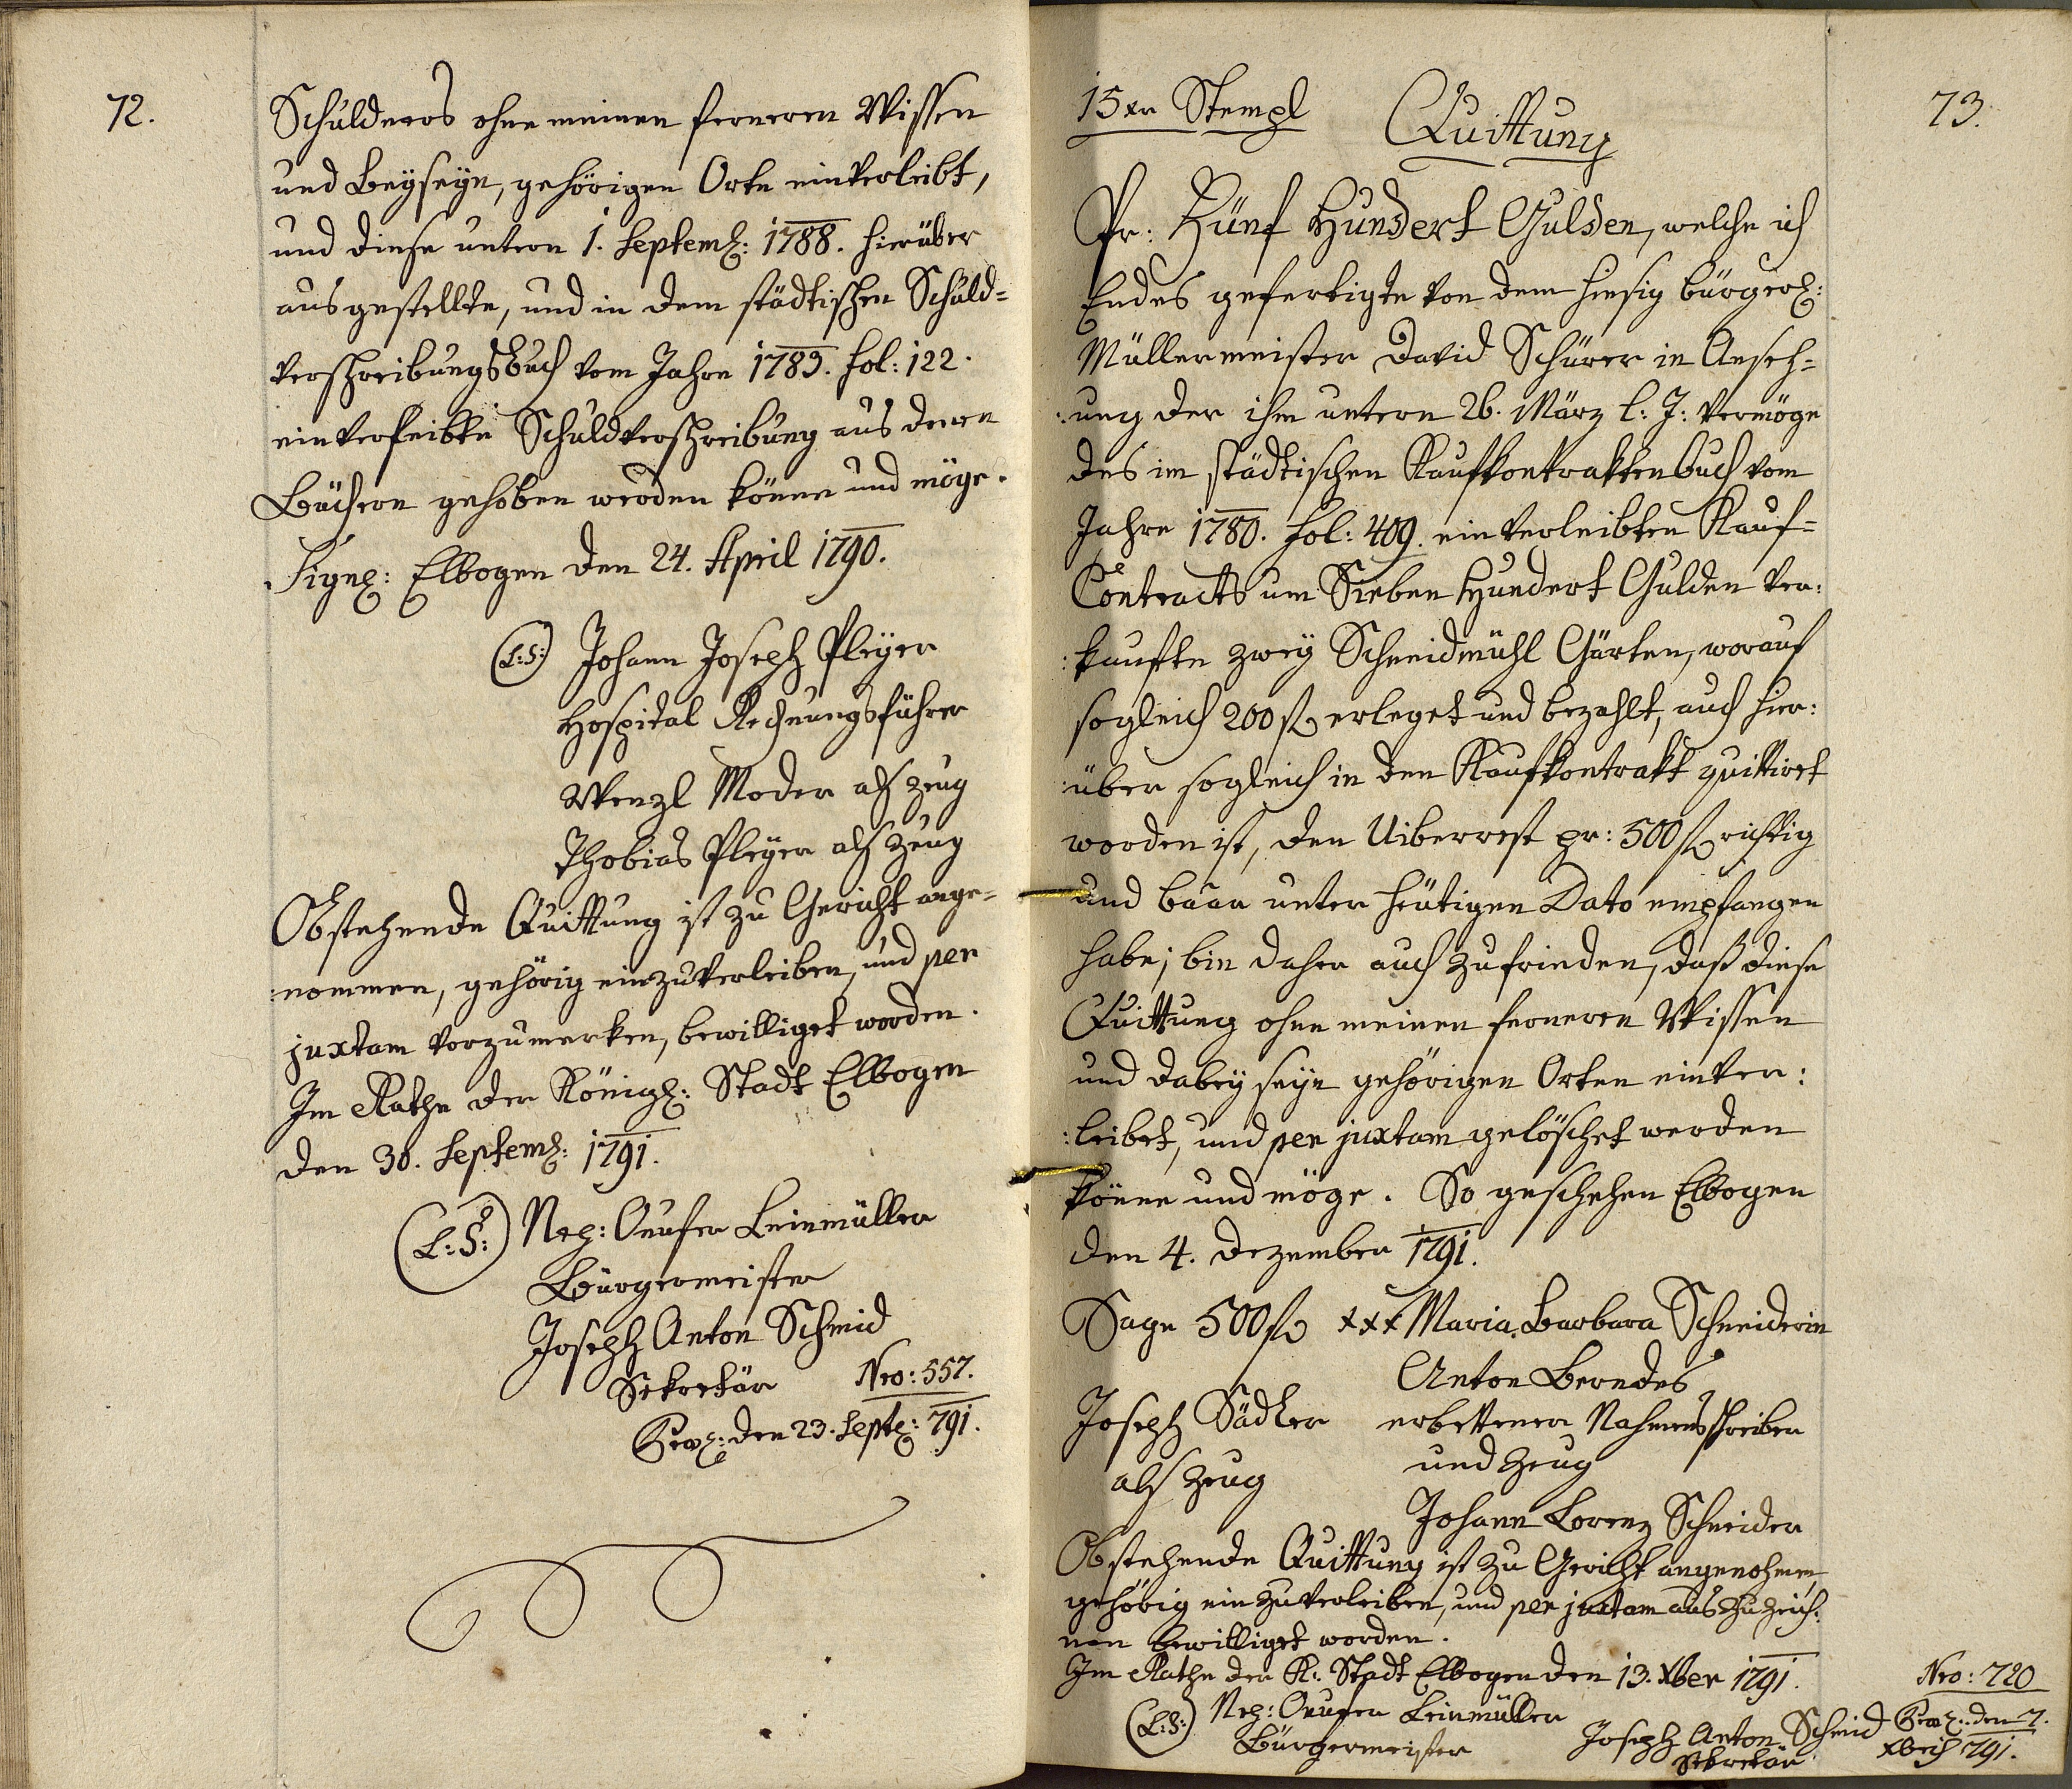 72.
Schuldners ohne meinen ferneren Wissen
und Beyseyn, gehörigen Orte einverleibt,
und diese untern 1. Septemb: 1788. hierüber
ausgestellte, und in dem städtischen Schuld=
verschreibungsbuch vom Jahre 1783. fol: 122.
einverleibte Schuldverschreibung aus denen
Büchern gehoben werden könne und möge.
Sign: Elbogen den 24. April 1790.
(L:S:) Johann Joseph Pleyer
Hospital Rechnungsführer
Wenzl Moder als Zeug
Thobias Pleyer als Zeug
Obstehende Quittung ist zu Gericht ange=
:nommen, gehörig einzuverleiben, und per
juxtam vorzumerken, bewilliget worden.
Im Rathe der Königl: Stadt Elbogen
den 30. Septemb: 1791.
(L:S:) Nep: Onufer Leinmüller
Bürgermeister
Joseph Anton Schmid
Sekretär Nro: 557.
den 23. Sept: 791.
73.
15xr Stempl
Quittung
Pr: Fünf Hundert Gulden, welche ich
Endes gefertigte von dem hiesig bürgerl:
Müllermeister David Schürer in Anseh=
:ung der ihm untern 26. März l: J: vermöge
des im städtischen Kaufkontraktenbuch vom
Jahre 1780. fol: 409. einverleibten Kauf=
Contracts um Sieben Hundert Gulden ver:
:kaufte zwey Schneidmühl Gärten, worauf
sogleich 200 fl erleget und bezahlt, auch hier:
:über sogleich in den Kaufkontrakt quittiret
worden ist, den Uiberrest pr: 500 fl richtig
und baar unter heutigen Dato empfangen
habe; bin daher auch zufrieden, daß diese
Quittung ohne meinen ferneren Wissen
und dabey seyn gehörigen Orten einver:
:leibet, und per juxtam gelöschet werden
könne und möge. So geschehen Elbogen
den 4. Dezember 1791.
Sage 500 fl xxx Maria Barbara Schneiderin
Anton Berndes
Joseph Sädler erbettener Nahmensschreiber
als Zeug und Zeug
Johann Lorenz Schneider
Obstehende Quittung ist zu Gericht angenohmen,
gehörig einzuverleiben, und per juxtam auszuzeich:
nen bewilliget worden.
Im Rathe der K: Stadt Elbogen den 13. Xber 1791.
(L:S:) Nep: Onufer Leinmüller
Bürgermeister
Joseph Anton Schmid
Sekretär
Nro: 720
den 7.
Xbris 791.